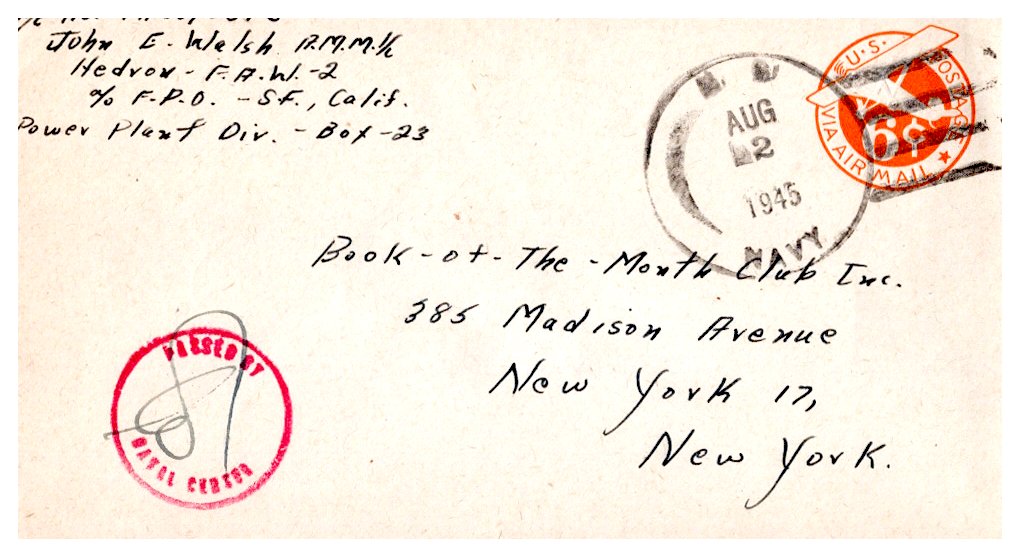 John E. Walsh A.M.M. 1/c
Hedron - F.A.W. - 2
c/o F.P.O. - S.F., Calif.
Power Plant Div. - Box - 23
U.S. POSTAGE
6¢
VIA AIR MAIL
AUG
2
1945
NAVY
Book - of - The - Month Club Inc.
385 Madison Avenue
New York 17,
New York.
PASSED BY
NAVAL CENSOR